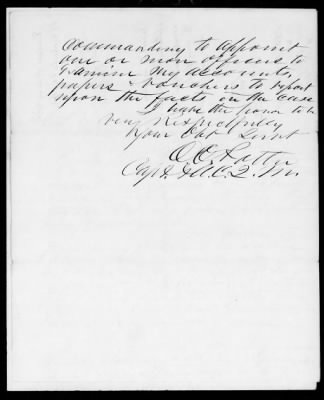 Commanding to appoint
one or more officers to
examine my accounts,
papers & vouchers to report
upon the facts in the case
I have the honor to be
very respectfully
Your Obt Servt
Capt. & A.C.Q.M.